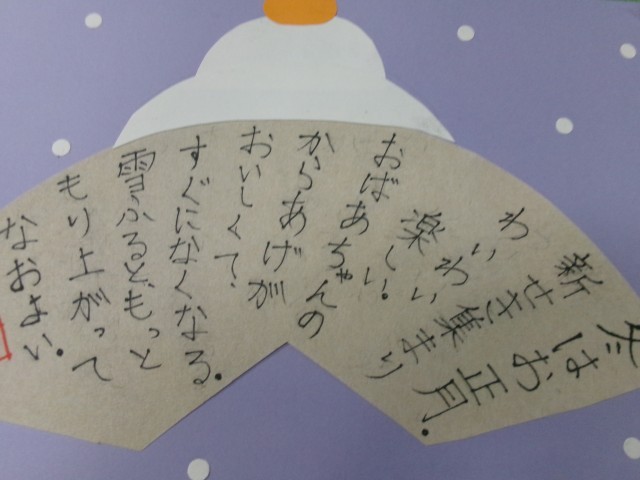 冬はお正月。
新せき集まり
わいわい
楽しい。
おばあちゃんの
からあげが
おいしくて、
すぐになくなる。
雪ふるともっと
もり上がって
なおよい。